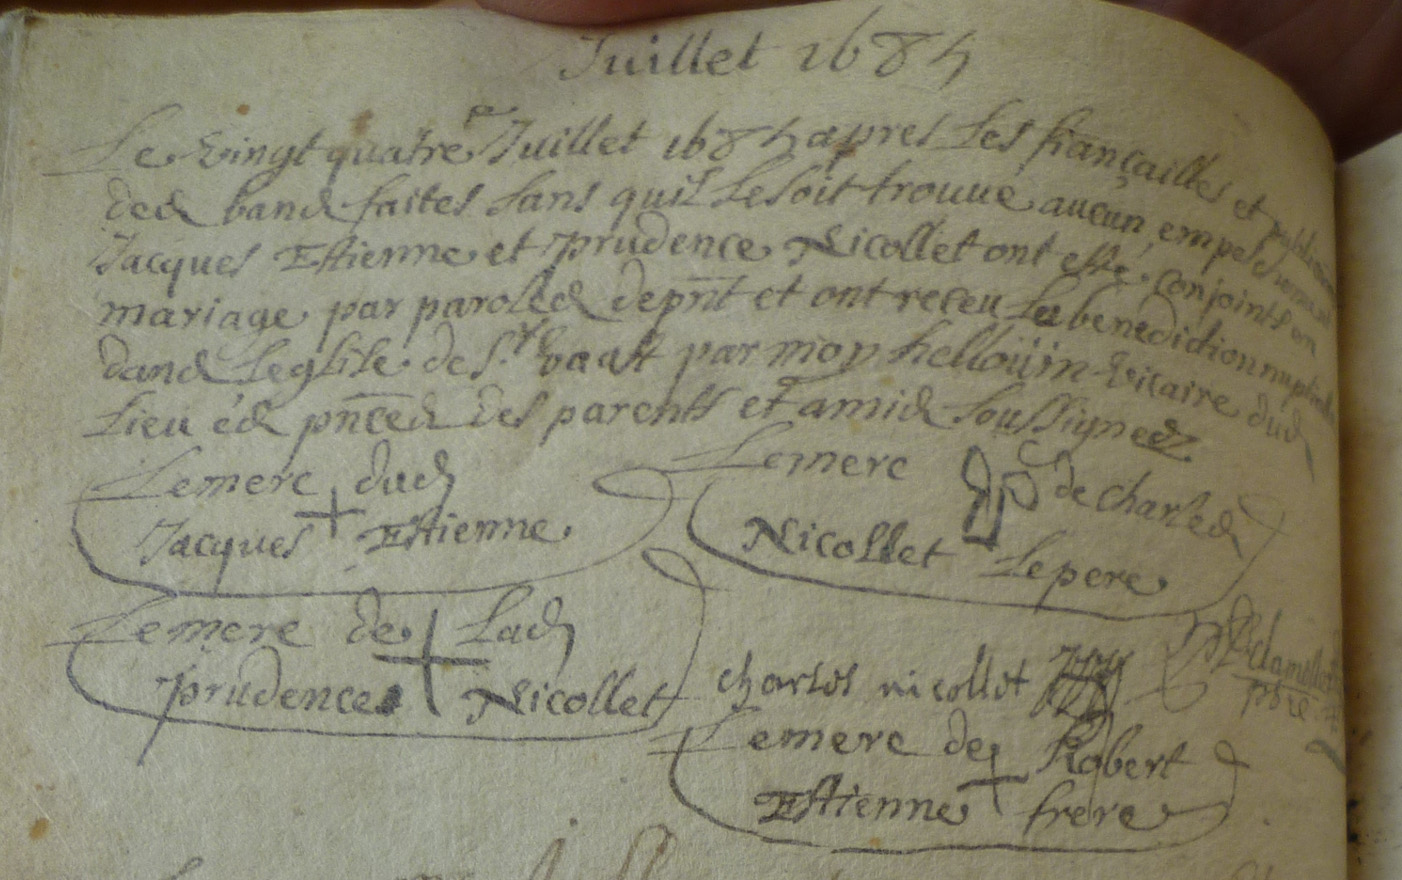 Juillet 1684
Le Vingt quatre Juillet 1684 apres Les fiançailles et
ded band faites sans quil se soit trouué aucun, empeschement
Jacques Estienne et prudence Nicollet ont esté conjoints en
mariage par paroled de pnt et ont receu La benediction nuptiale
dand Leglise de St vaast par moy helloüin Vicaire dud
Lieu ed pnced des parents et amid soussignedz
Lemerc dud Lemerc de charled
Jacques + Estienne Nicollet Lepere
Lemerc de + Lad
prudence Nicollet charles nicollet
ptre
Lemerc de + Robert
Estienne frere